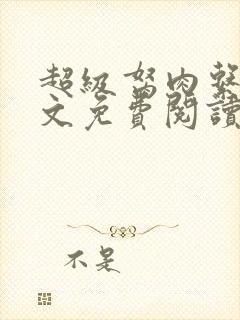 超級驽肉製
文免費閱讀
不是